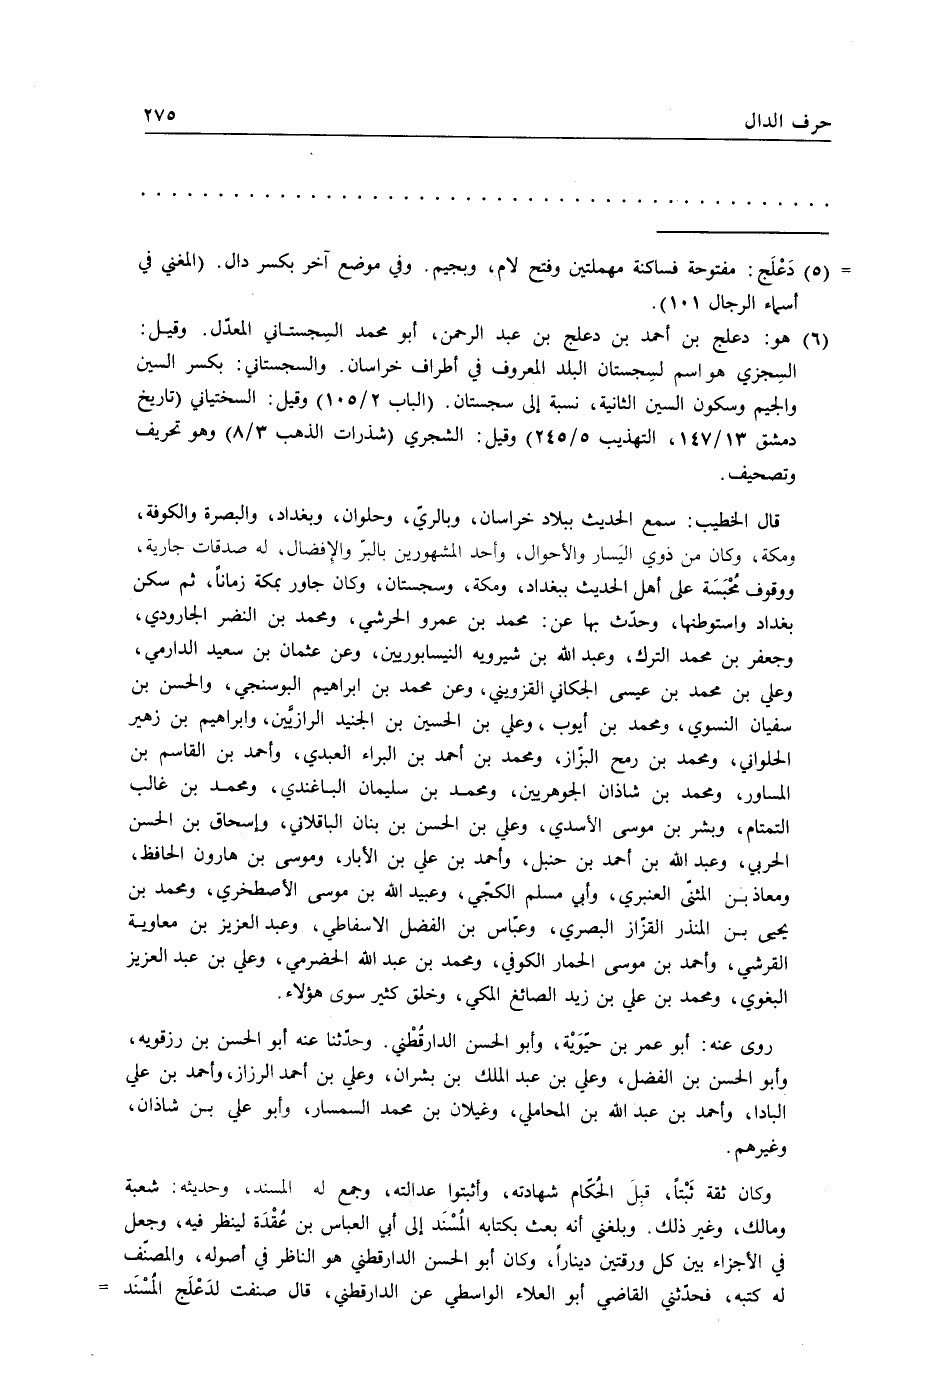 حرف الدال ٢٧٥
. . . . . . . . . . . . . . . . . . . . . . . . . . . . . . . . . . . . . . . . . .
= (٥) دَعْلَج: مفتوحة فساكنة مهملتين وفتح لام، وبجيم. وفي موضع آخر بكسر دال. (المغني في
أسماء الرجال ١٠١).
(٦) هو: دعلج بن أحمد بن دعلج بن عبد الرحمن، أبو محمد السِجستـاني المعدّل. وقيـل:
السِجزي هو اسم لسِجستان البلد المعروف في أطراف خراسان. والسجستاني: بكسر السين
والجيم وسكون السين الثانية، نسبة إلى سجستان. (الباب ١٠٥/٢) وقيل: السختياني (تاريخ
دمشق ١٤٧/١٣، التهذيب ٢٤٥/٥) وقيل: الشجري (شذرات الذهب ٨/٣) وهو تحريف
وتصحيف.
قال الخطيب: سمع الحديث ببلاد خراسان، وبالريّ، وحلوان، وبغداد، والبصرة والكوفة،
ومكة، وكان من ذوي اليَسار والأحوال، وأحد المشهورين بالبرّ والإفضال، له صدقات جارية،
ووقوف مُحْبَسَة على أهل الحديث ببغداد، ومكة، وسجستان، وكان جاور بمكة زماناً، ثم سكن
بغداد واستوطنها، وحدّث بها عن: محمد بن عمرو الحرشي، ومحمد بن النضر الجارودي،
وجعفر بن محمد الترك، وعبد الله بن شيرويه النيسابوريين، وعن عثمان بن سعيد الدارمي،
وعلي بن محمد بن عيسى الجكاني القزويني، وعن محمد بن ابراهيم البوسنجي، والحسن بن
سفيان النسوي، ومحمد بن أيوب، وعلي بن الحسين بن الجنيد الرازيَّين، وابراهيم بن زهير
الحلواني، ومحمد بن رمح البزّاز، ومحمد بن أحمد بن البراء العبدي، وأحمد بن القاسم بن
المساور، ومحمد بن شاذان الجوهريين، ومحمـد بن سليمان البـاغندي، ومحمـد بن غالب
التمتام، وبشر بن موسى الأسدي، وعلي بن الحسن بن بنان الباقلاني، وإسحاق بن الحسن
الحربي، وعبد الله بن أحمد بن حنبل، وأحمد بن علي بن الأبار، وموسى بن هارون الحافظ،
ومعاذ بـن المثنّى العنبري، وأبي مسلم الكجّي، وعبيد الله بن موسى الأصطخري، ومحمد بن
يحيى بـن المنذر القزّاز البصري، وعبّاس بن الفضل الاسفاطي، وعبد العزيز بن معاويـة
القرشي، وأحمد بن موسى الحمار الكوفي، ومحمد بن عبد الله الحضرمي، وعلي بن عبد العزيز
البغوي، ومحمد بن علي بن زيد الصائغ المكي، وخلق كثير سوى هؤلاء.
روى عنه: أبو عمر بن حيّوَيْة، وأبو الحسن الدارقُطْني. وحدّثنا عنه أبو الحسن بن رزقويه،
وأبو الحسن بن الفضل، وعلي بن عبد الملك بن بشران، وعلي بن أحمد الرزاز، وأحمد بن علي
البادا، وأحمد بن عبد الله بن المحاملي، وغيلان بن محمد السمسار، وأبو علي بـن شاذان،
وغيرهم.
وكان ثقة ثَبْتاً، قبِلَ الحُكّام شهادته، وأثبتوا عدالته، وجمع له المسند، وحديثه: شعبة
ومالك، وغير ذلك. وبلغني أنه بعث بكتابه المُسْنَد إلى أبي العباس بن عُقْدَة لينظر فيه، وجعل
في الأجزاء بين كل ورقتين ديناراً، وكان أبو الحسن الدارقطني هو الناظر في أصوله، والمصنّف
له كتبه، فحدّثني القاضي أبو العلاء الواسطي عن الدارقطني، قال صنفت لدَعْلَج المُسْنَد =